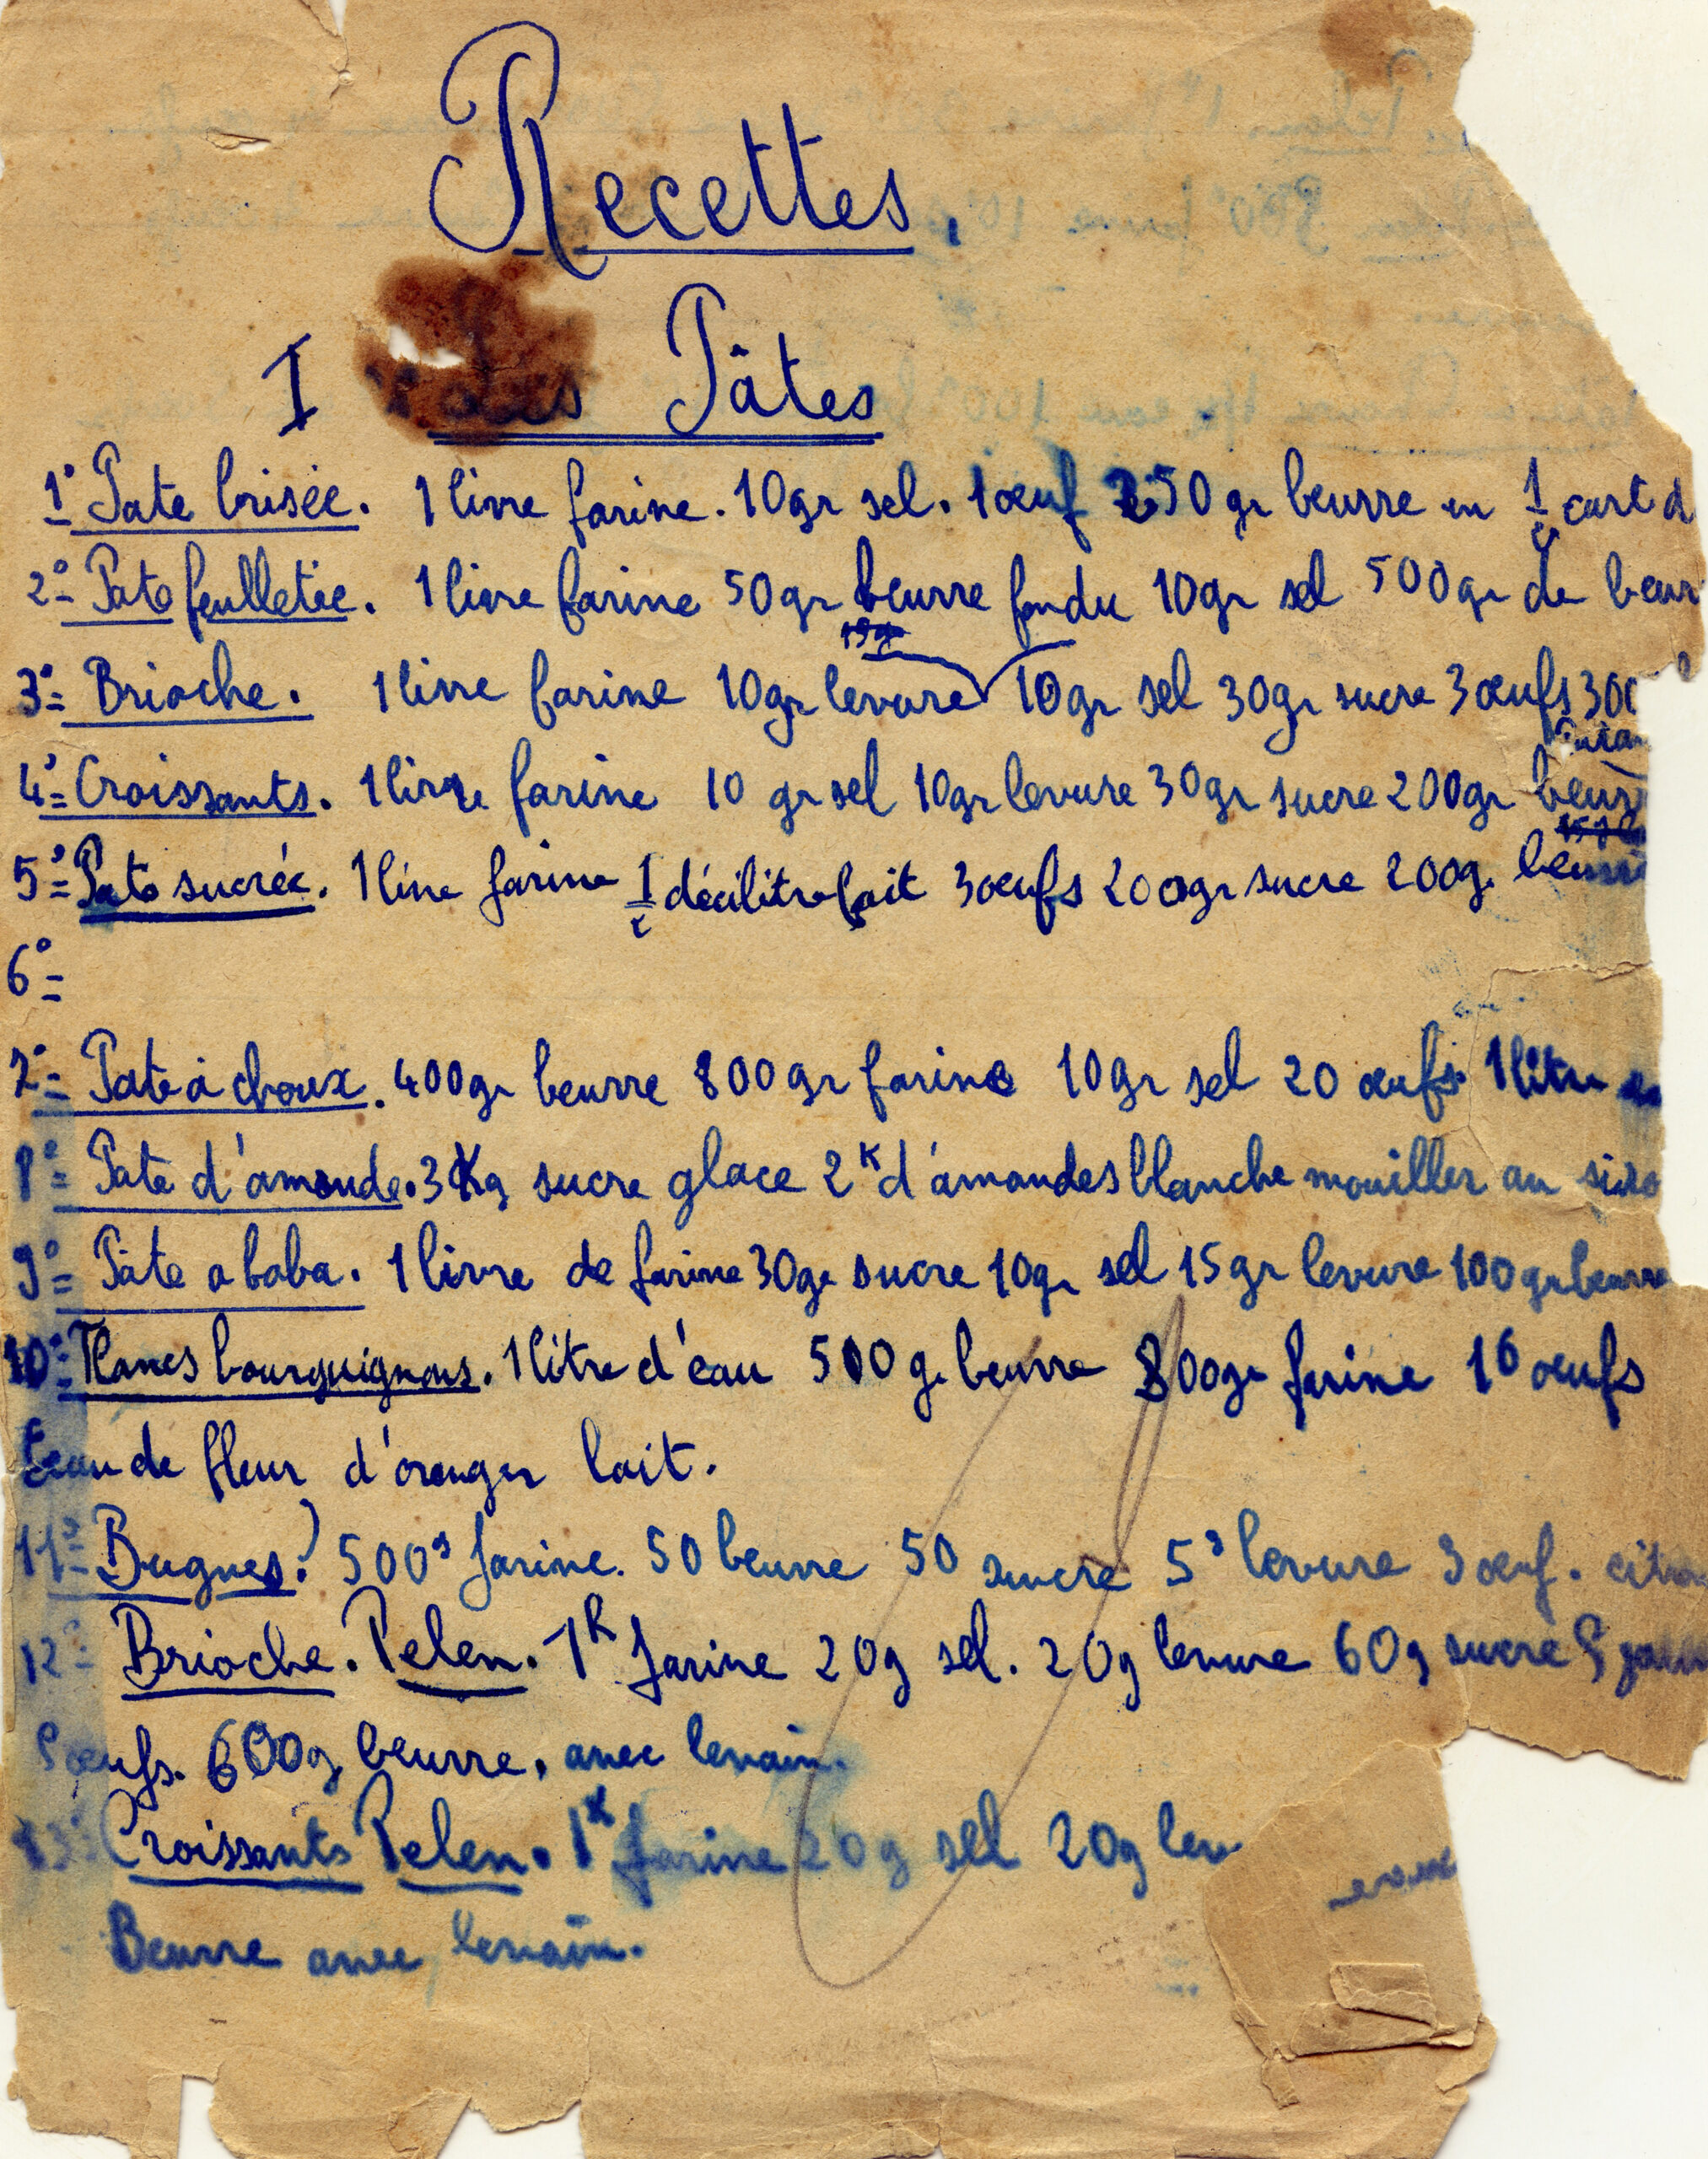 Recettes.
I des Pâtes
1° Pate brisée. 1 livre farine. 10gr sel. 1 œuf 250 gr beurre en 1 cart d
2° Pate feulletée. 1 livre farine 50gr beurre fondu 10gr sel 500gr de beur
15gr
3° Brioche. 1 livre farine 10gr levure 10gr sel 30gr sucre 3 œufs 300
4° Croissants. 1 livre farine 10 gr sel 10gr levure 30gr sucre 200gr beurr
5° Pate sucrée. 1 livre farine 1 décilitre lait 3 œufs 200gr sucre 200g. beurre
6°
7° Pate à choux. 400gr beurre 800gr farine 10gr sel 20 œufs. 1 litre
8° Pate d'amande. 3 Kg sucre glace 2K d'amandes blanche mouiller au siro
9° Pâte a baba. 1 livre de farine 30gr sucre 10gr sel 15gr levure 100gr beurre
10° Flancs bourguignons. 1 litre d'eau 500 g. beurre 800gr farine 16 œufs
Eau de fleur d'oranger lait.
11° Bugnes. 500g farine. 50 beurre 50 sucre 5g levure 3 œuf. citro
12° Brioche. Pelen. 1K farine 20g sel. 20g levure 60g sucre
œufs. 600g beurre, avec levain.
13° Croissants Pelen. 1K farine 20g sel 20g lev
Beurre avec levain.